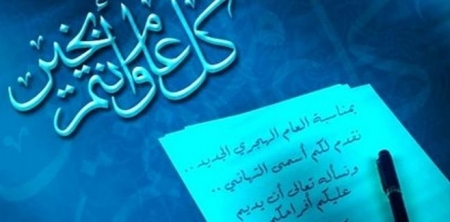 كل عام وأنتم بخير
بمناسبة العام الهجري الجديد ..
نقدم لكم أسمى التهاني ..
ونسأله تعالى أن يديم
عليكم أفراحكم